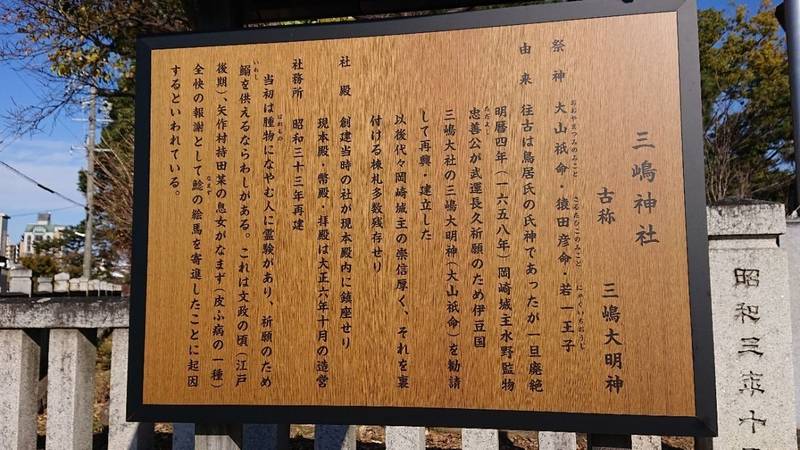 三嶋神社
古称 三嶋大明神
祭神 大山祇命・猿田彦命・若一王子
おおやまつみのみこと さるたひこのみこと にゃくいちおうじ
由来 往古は鳥居氏の氏神であったが一旦廃絶
明暦四年(一六五八年)岡崎城主水野監物
忠善公が武運長久祈願のため伊豆国
ただよし
三嶋大社の三嶋大明神(大山祇命)を勧請
して再興・建立した
以後代々岡崎城主の崇信厚く、それを裏
付ける棟札多数残存せり
社殿 創建当時の社が現本殿内に鎮座せり
現本殿・幣殿・拝殿は大正六年十月の造営
社務所 昭和三十三年再建
当初は腫物になやむ人に霊験があり、祈願のため
はれもの
鰯を供えるならわしがある。これは文政の頃(江戸
いわし
後期)、矢作村持田某の息女がなまず(皮ふ病の一種)
全快の報謝として鯰の絵馬を寄進したことに起因
なまず
するといわれている。
昭和三年十